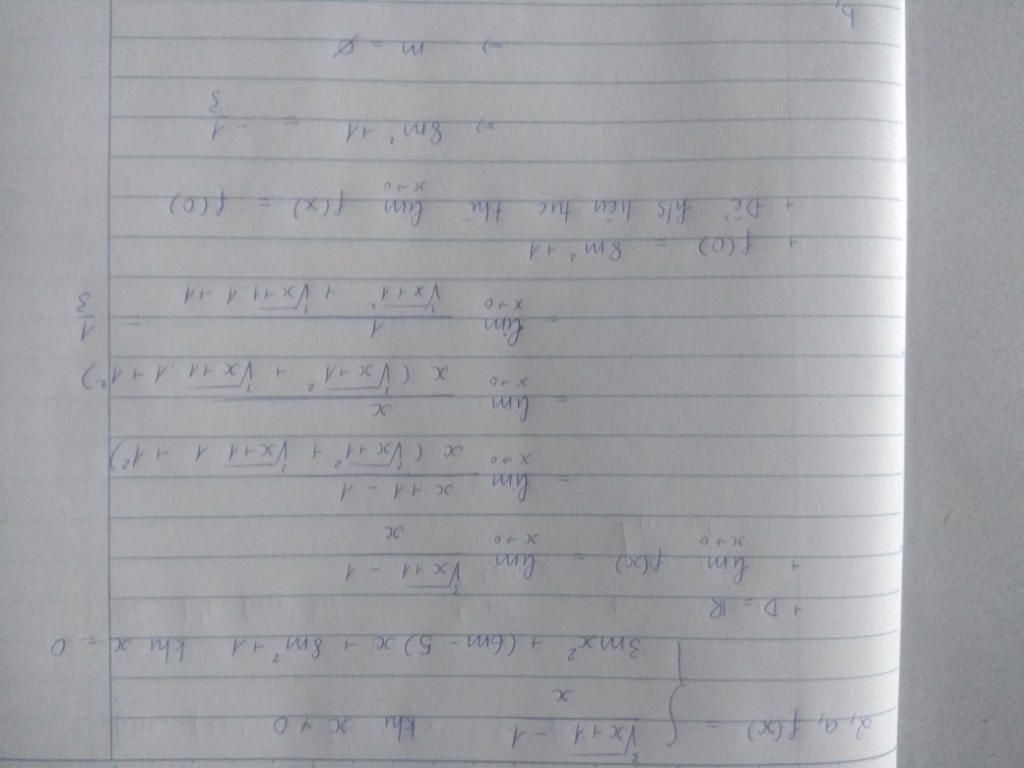 2, a, f(x) = { (∛(x+1) - 1)/x khi x ≠ 0
3mx² + (6m - 5)x + 8m² + 1 khi x = 0
+ D = R
+ lim x→0 f(x) = lim x→0 (∛(x+1) - 1)/x
= lim x→0 (x + 1 - 1)/(x (∛(x+1)² + ∛(x+1) 1 + 1²))
= lim x→0 x/(x (∛(x+1)² + ∛(x+1) . 1 + 1²))
= lim x→0 1/(∛(x+1)² + ∛(x+1) . 1 + 1) = 1/3
+ f(0) = 8m² + 1
+ Để h/s liên tục thì lim x→0 f(x) = f(0)
⇒ 8m² + 1 = - 1/3
⇒ m = ∅
b,